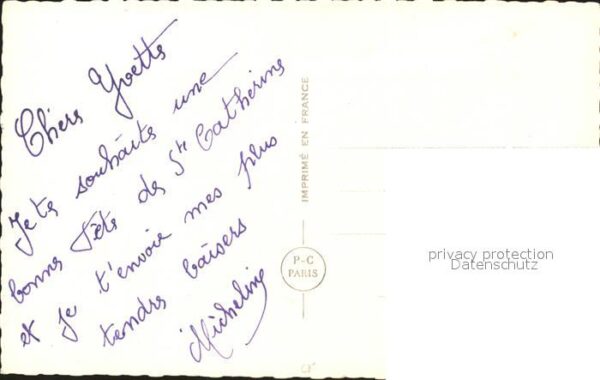 Chers Yvette
Je te souhaite une
bonne fête de Ste Catherine
et je t'envoie mes plus
tendres baisers
Micheline
IMPRIMÉ EN FRANCE
P-C
PARIS
privacy protection
Datenschutz